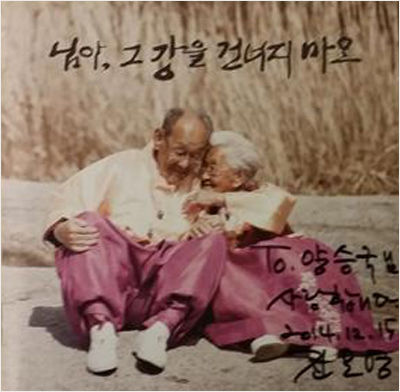 님아, 그 강을 건너지 마오
To. 양승국님
사랑합니다
2014.12.15
진모영